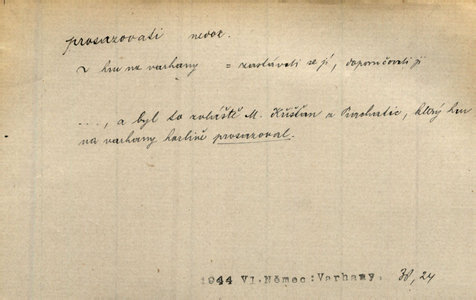 prosazovati nedok.
~ hru na varhany = zastávati se jí, doporučovati ji
...., a byl to zvláště M. Křišťan z Prachatic, který hru
na varhany horlivě prosazoval.
1944 Vl.Němec:Varhany. 38, 24